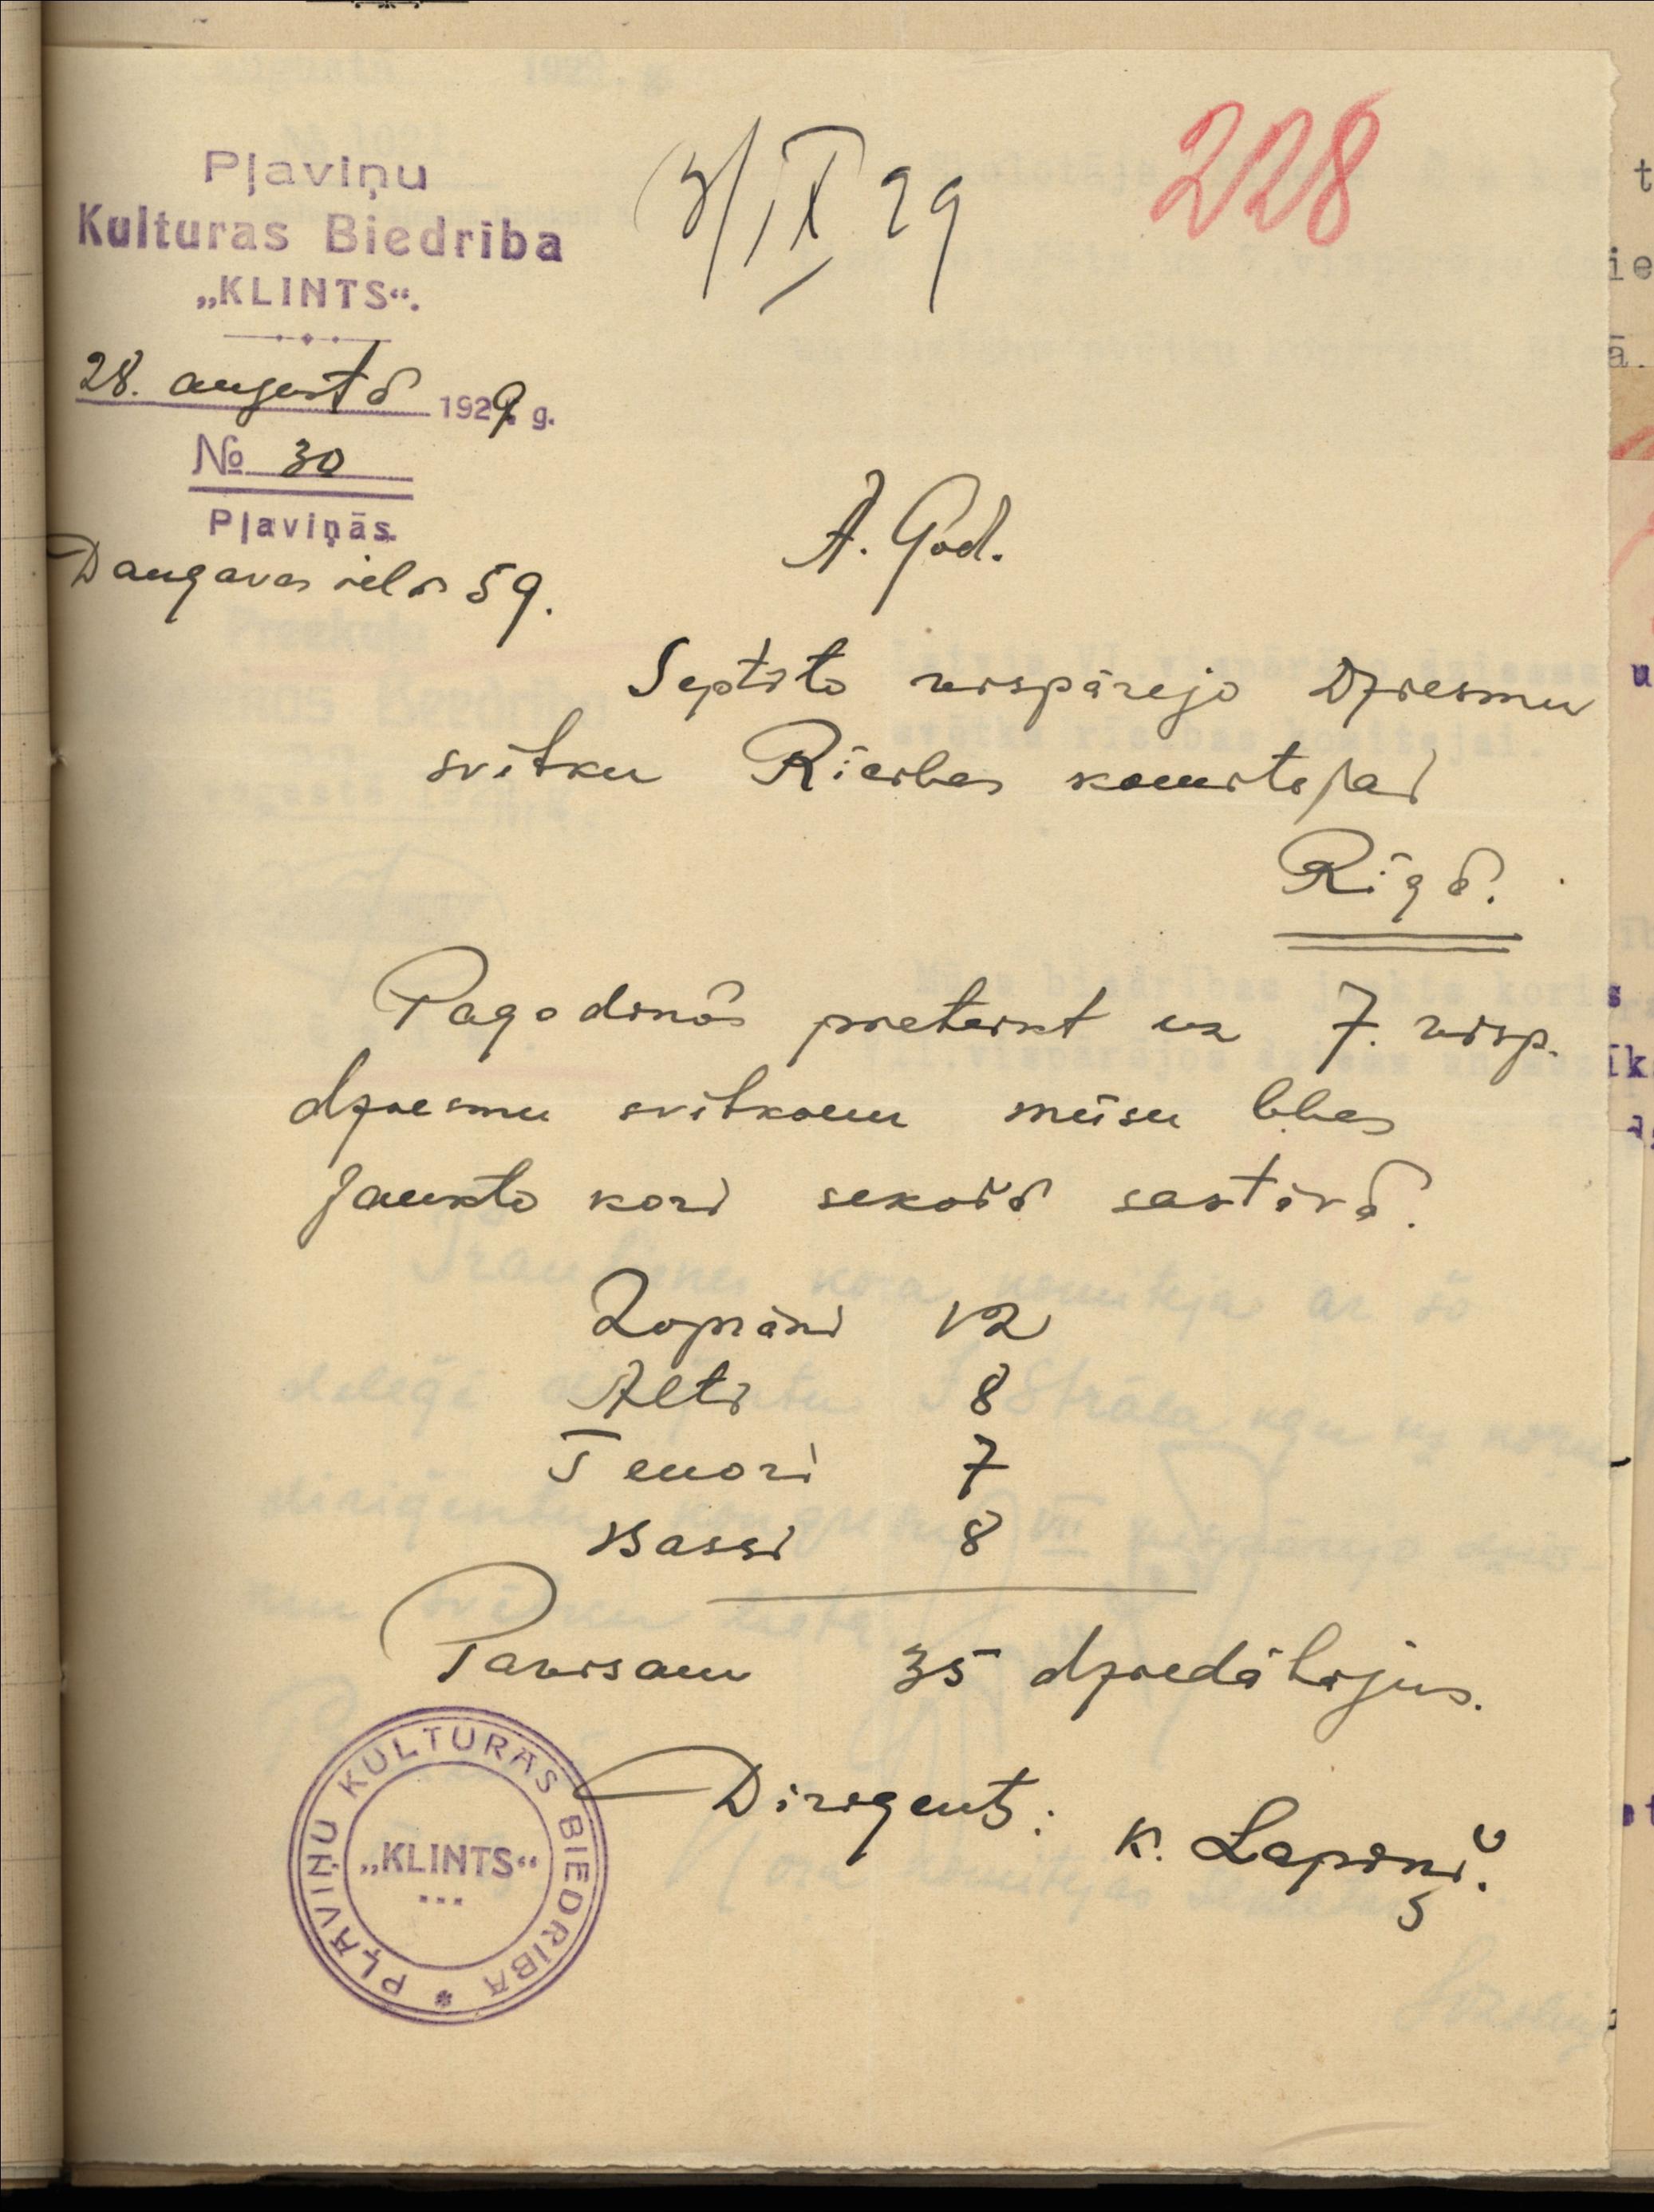 Pļaviņu
Kulturas Biedrība
„KLINTS“.
3/IX 29
228
28. augustā 1929. g.
№ 30
Pļaviņās.
Daugavas ielā 59.
A. God.
Septīto vispārejo Dziesmu
svētku Rīcības komitejai
Rīgā.
Pagodinos pieteikt uz 7. visp.
dziesmu svētkiem mūsu bbas
jaukto kori sekošā sastāvā.
Zoprāni 12
Alti 8
Tenori 7
Bassi 8
Pavisam 35 dziedātājus.
Dirigents: K. Lapiņš.
PĻAVIŅU KULTURAS BIEDRIBA * „KLINTS“